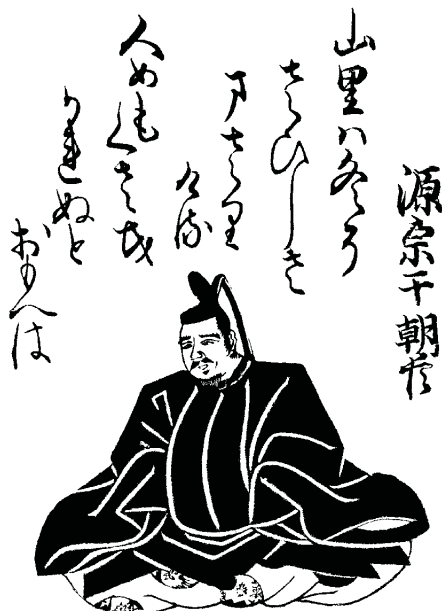 源宗于朝臣
山里ハ冬そ
さひしさ
まさり
ける
人めもくさも
かれぬと
おもへは